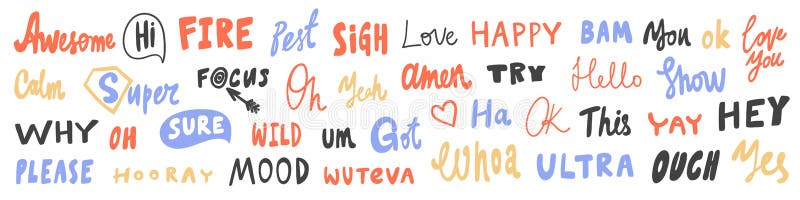 Awesome Hi FIRE Best SiGH Love HAPPY BAM You ok love you
Calm Super FOCUS Oh Yeah amen TRY Hello Show
WHY OH SURE WILD um Got Ha OK This YAY HEY
PLEASE HOORAY MOOD WUTEVA Whoa ULTRA OUCH Yes